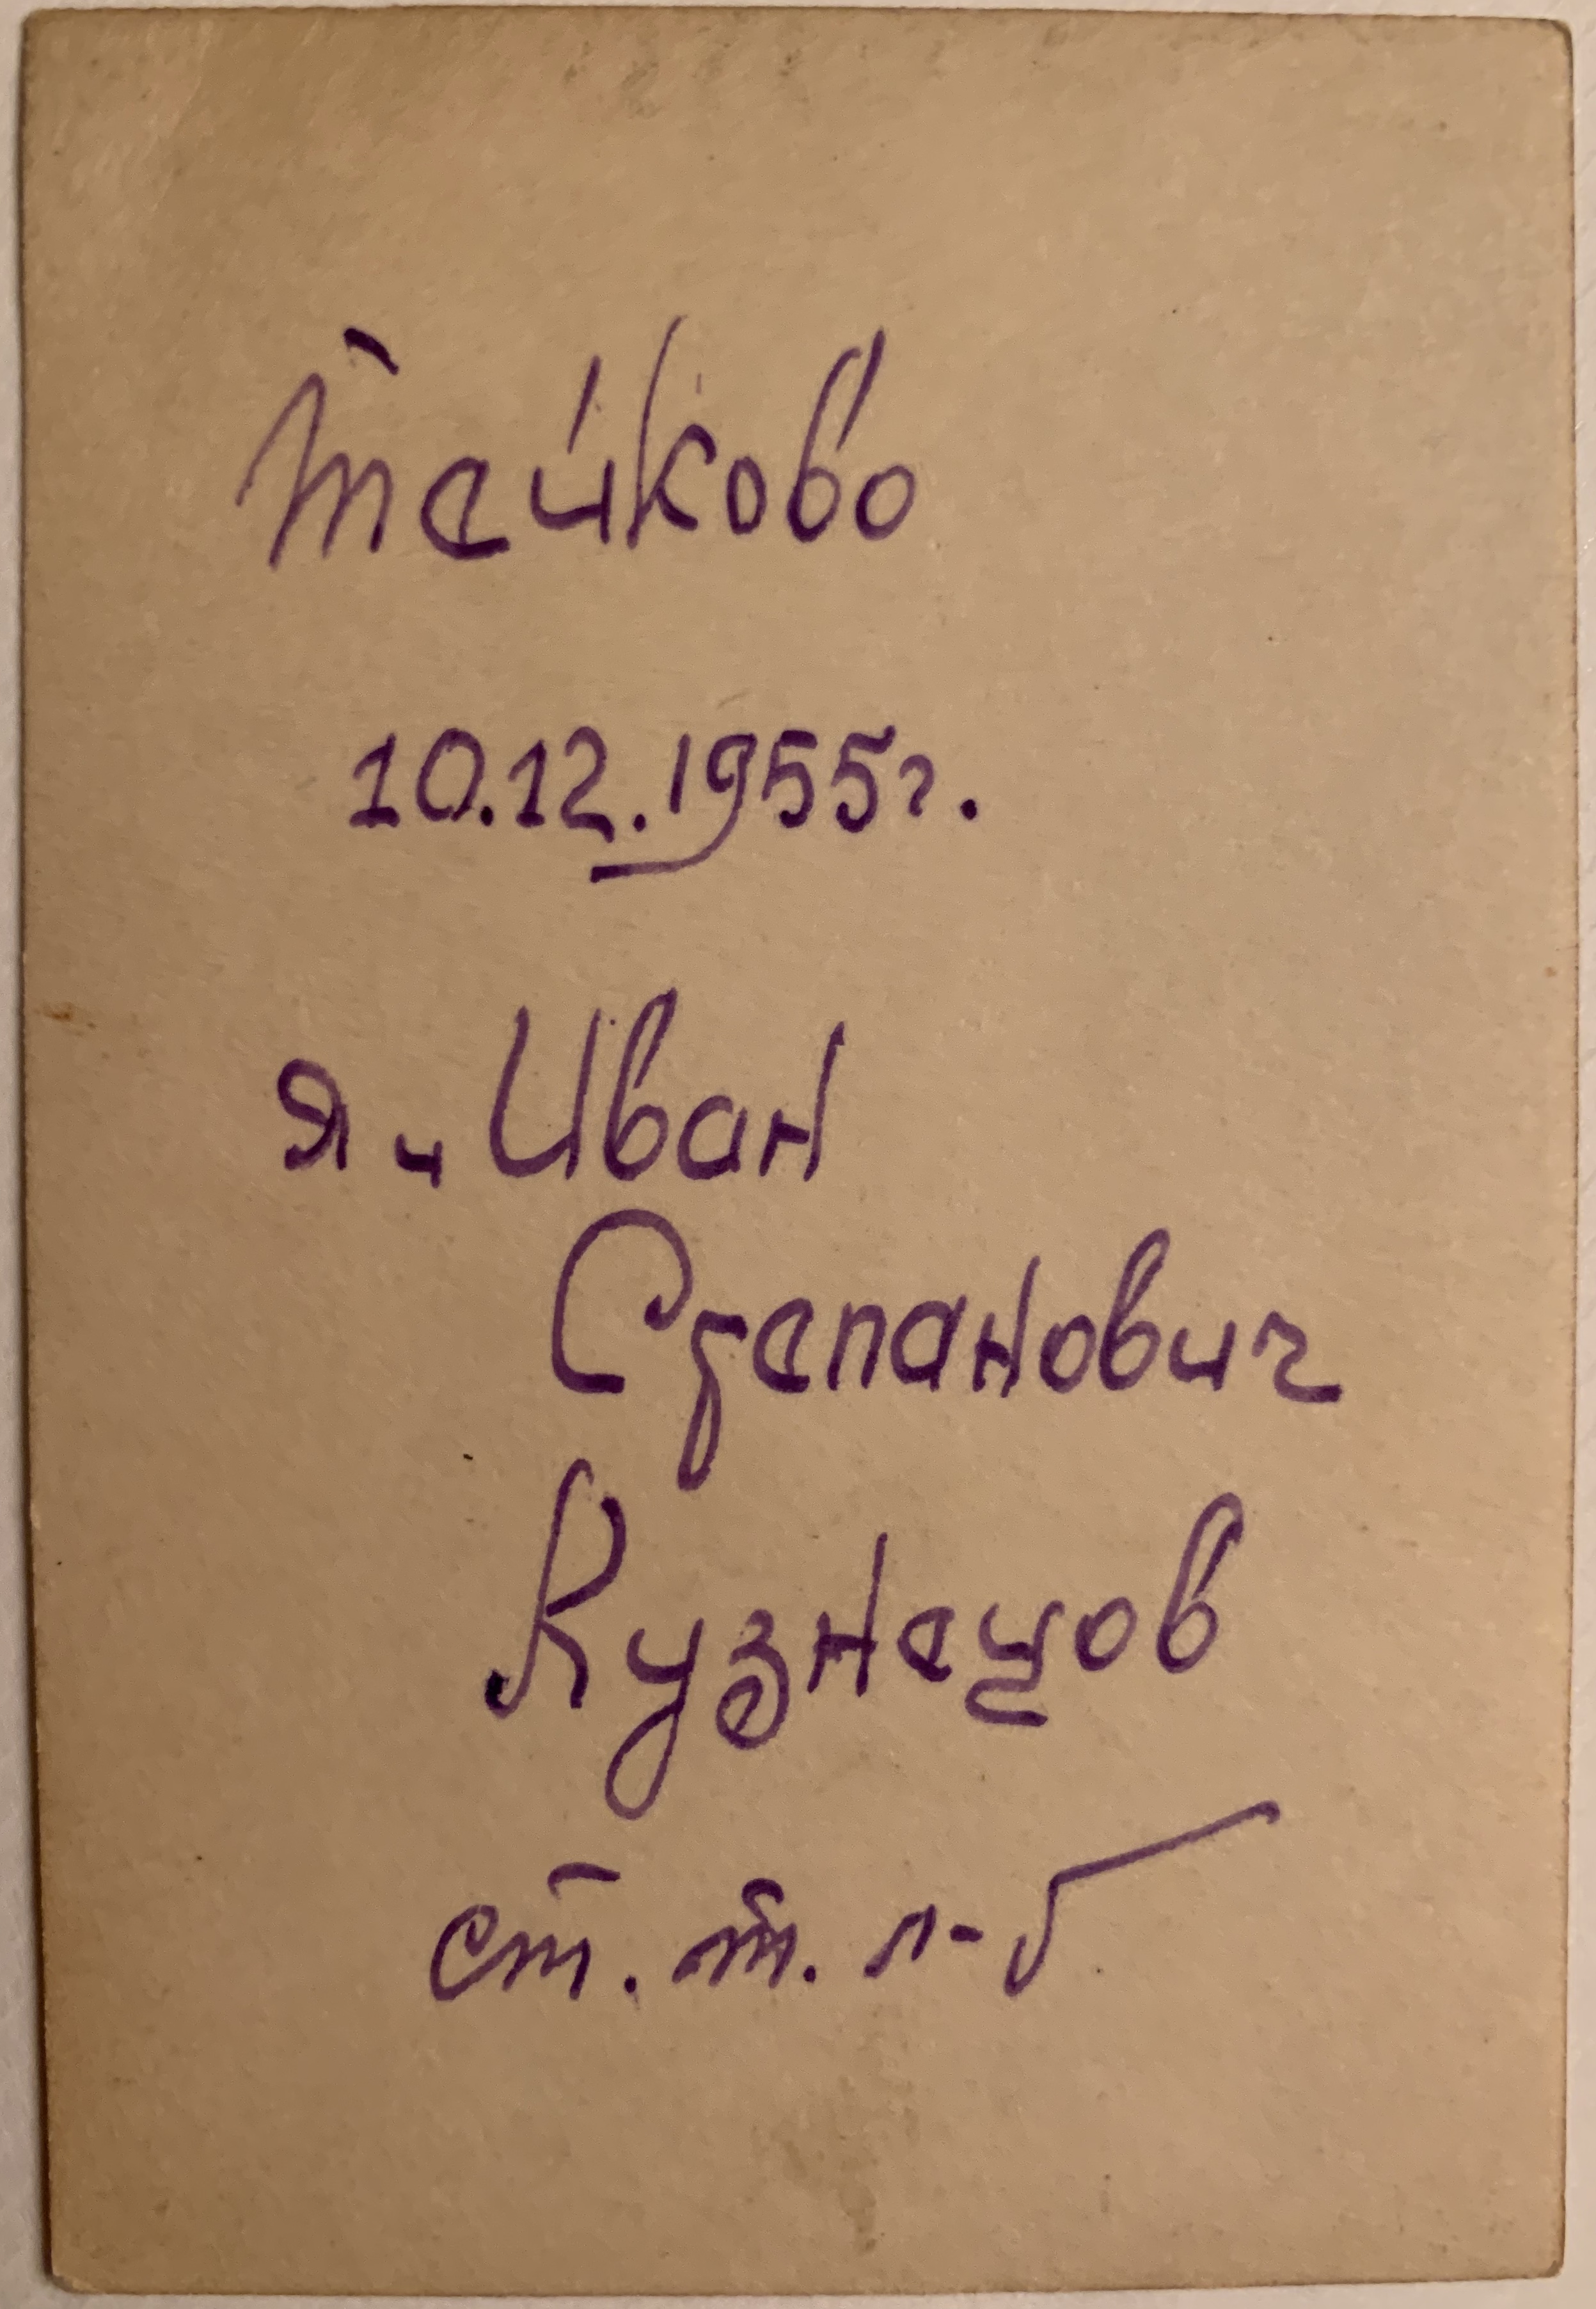 Тейково
10.12.1955г.
я и Иван
Степанович
Кузнецов
ст. т. л-т